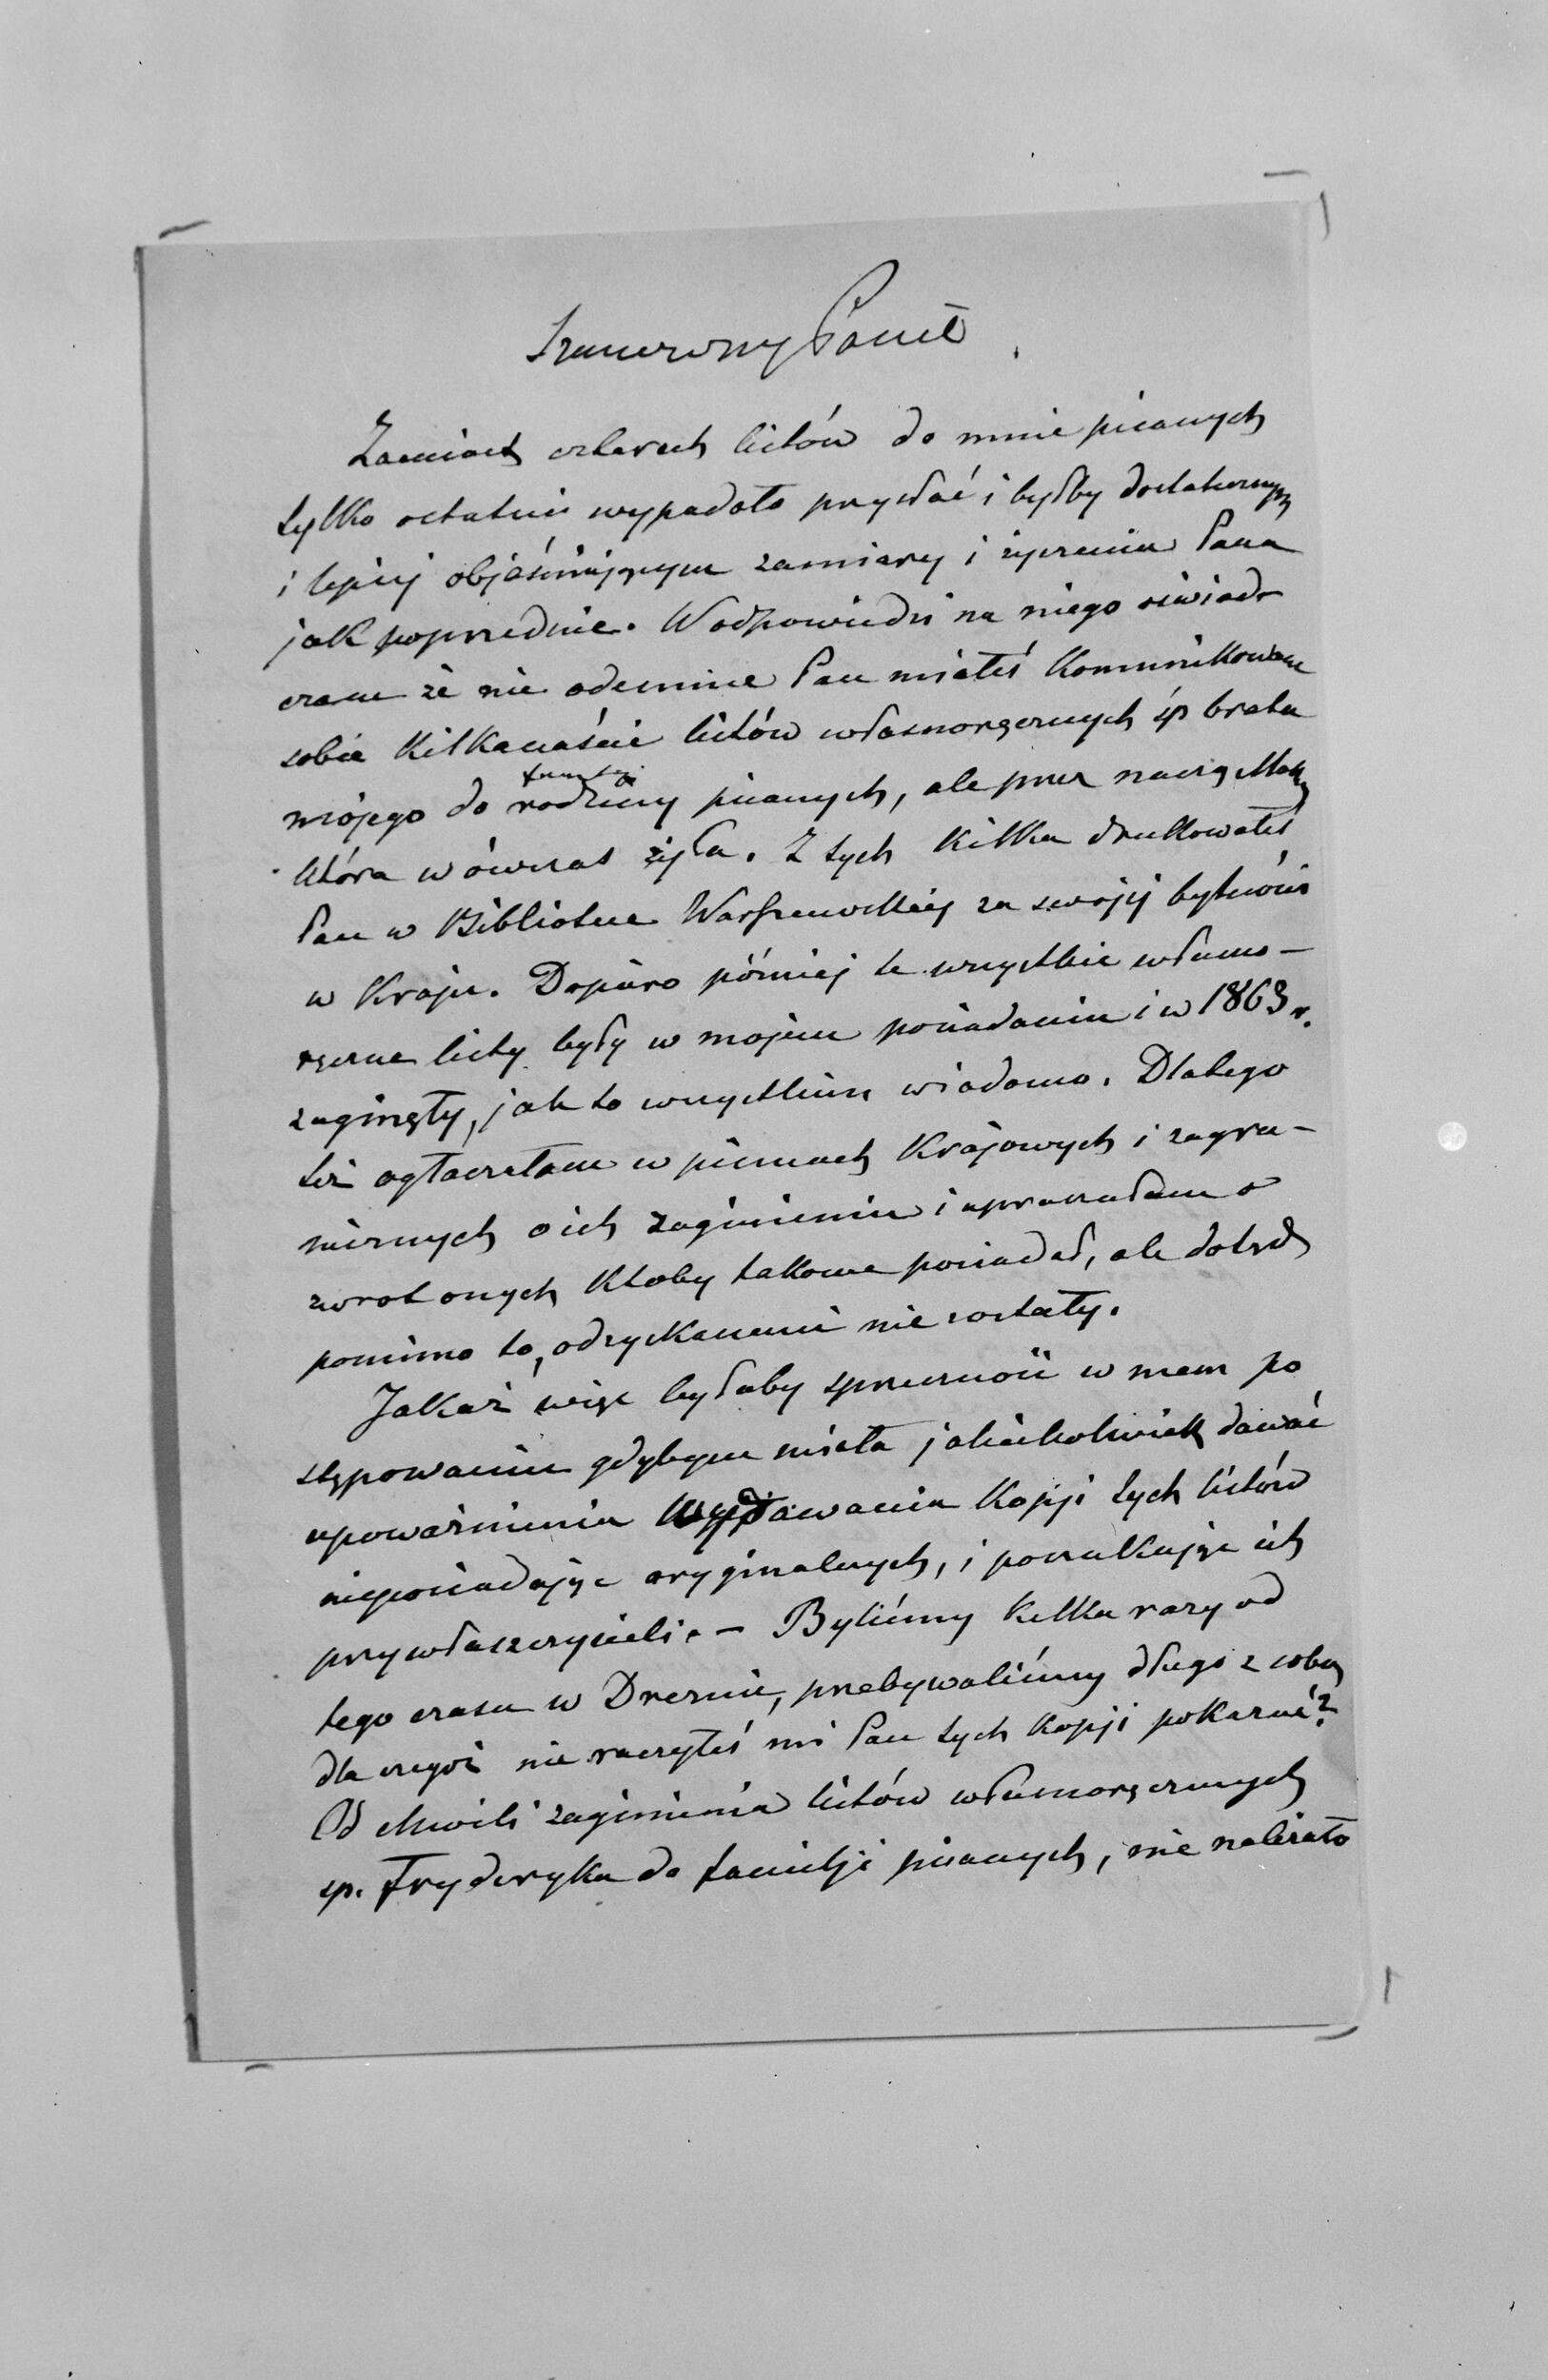 Szanowny Panie
Zamiast czterech listów do mnie pisanych
tylko ostatni wypadało przysłać i byłby dostatecznym
i lepiej objaśniającym zamiary i życzenia Pana
jak poprzednie. W odpowiedzi na niego oświad-
czam że nie odemnie Pan miałeś kommunikowane
sobie kilkanaście listów własnoręcznych śp brata
mojego do rodziny pisanych, ale przez naszą Matkę
która wówczas żyła. Z tych kilka drukowałeś
Pan w Bibliotece Warszawskiej za swojej bytności
w Kraju. Dopiero później te wszystkie własno-
ręczne listy były w mojem posiadaniu i w 1863 r.
zaginęły, jak to wszystkim wiadomo. Dlatego
też ogłaszałam w pismach Krajowych i zagra-
nicznych o ich zaginieniu i upraszałam o
zwrot onych ktoby takowe posiadał, ale dotąd
pomimo to, odzyskanemi nie zostały.
Jakaż więc byłaby sprzeczność w mem po
stępowaniu gdybym miała jakiekolwiek dawać
upoważnienia wydawania kopji tych listów
nieposiadając oryginalnych, i poszukując ich
przywłaszczycieli. - Byliśmy kilka razy od
tego czasu w Dreznie, przebywaliśmy długo z sobą
dla czegoż nie raczyłeś mi Pan tych kopji pokazać?
Od chwili zaginienia listów własnoręcznych
śp. Fryderyka do familji pisanych, nie należało